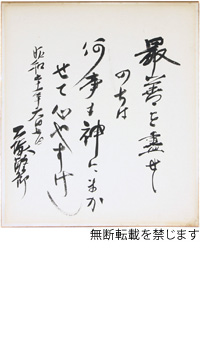 最善を盡せし
のちは
何事も神にまか
せて心やすけし
昭和
無断転載を禁じます